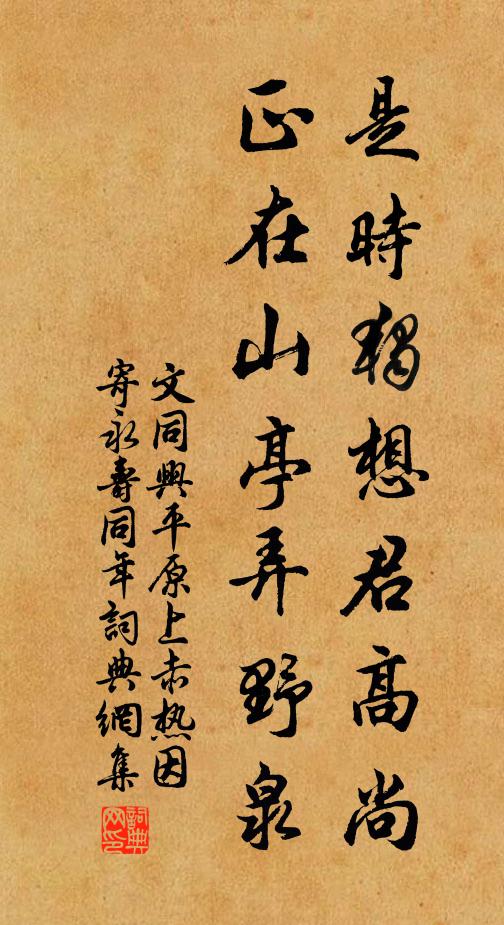 是時獨想君高尚
正在山亭弄野泉
文同興平原上赤熱因
寄永壽同年詞典網集
詞典网印